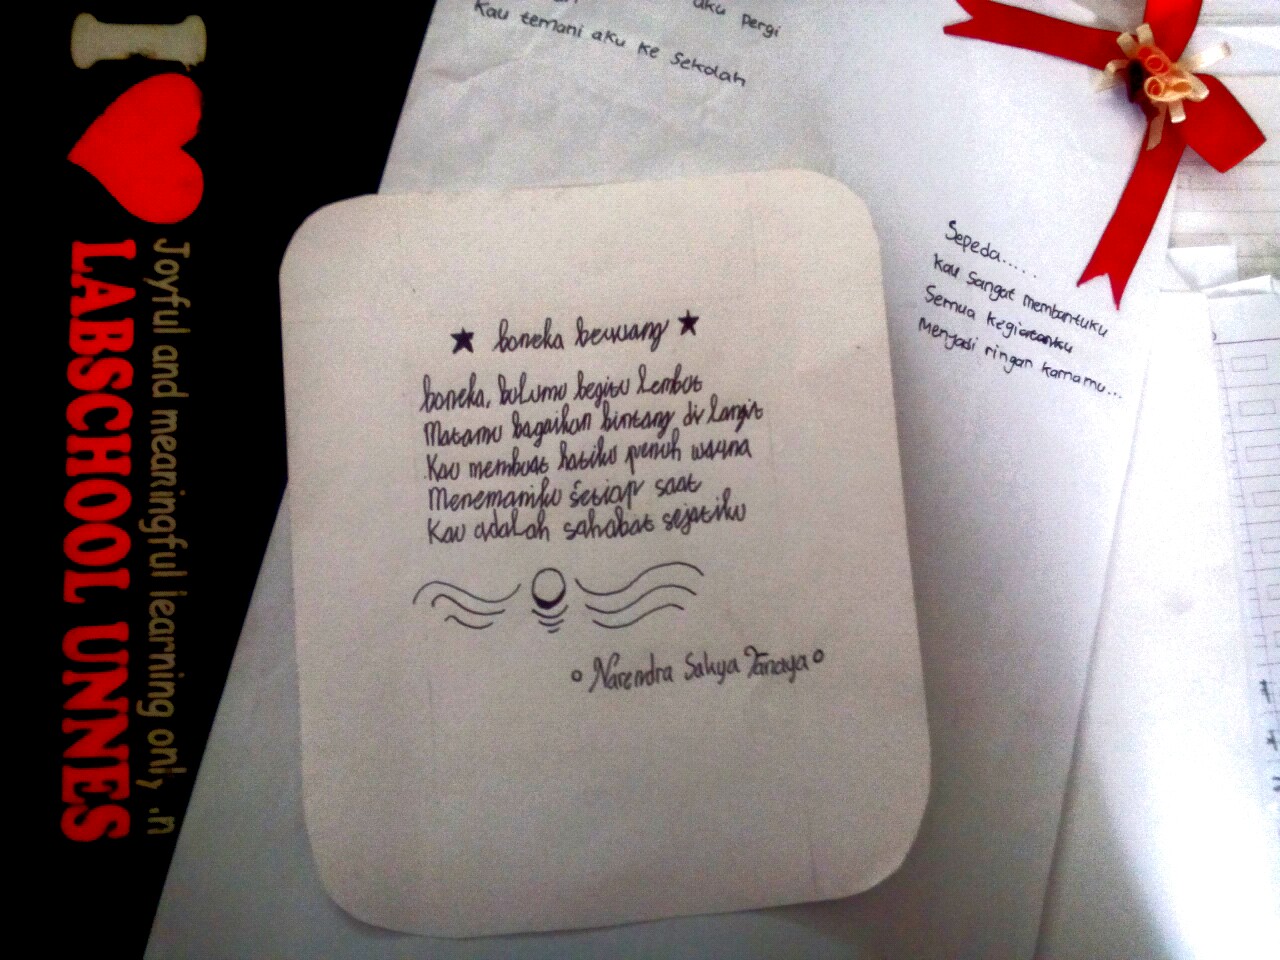 I
LABSCHOOL UNNES
Joyful and meaningful learning only
aku pergi
Kau temani aku ke sekolah
boneka beruang
boneka, bulumu begitu lembut
Matamu bagaikan bintang di langit
Kau membuat hatiku penuh warna
Menemaniku setiap saat
Kau adalah sahabat sejatiku
Narendra Satya Tanaya
Sepeda.....
Kau sangat membantuku
Semua kegiatanku
Menjadi ringan karnamu...